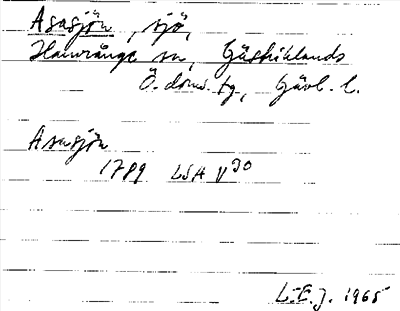 Asasjön, sjö,
Hamrånge sn, Gästriklands
Ö. doms. tg, Gävl. l.
Asasjön
1789 LSA V30
L.E.J. 1965